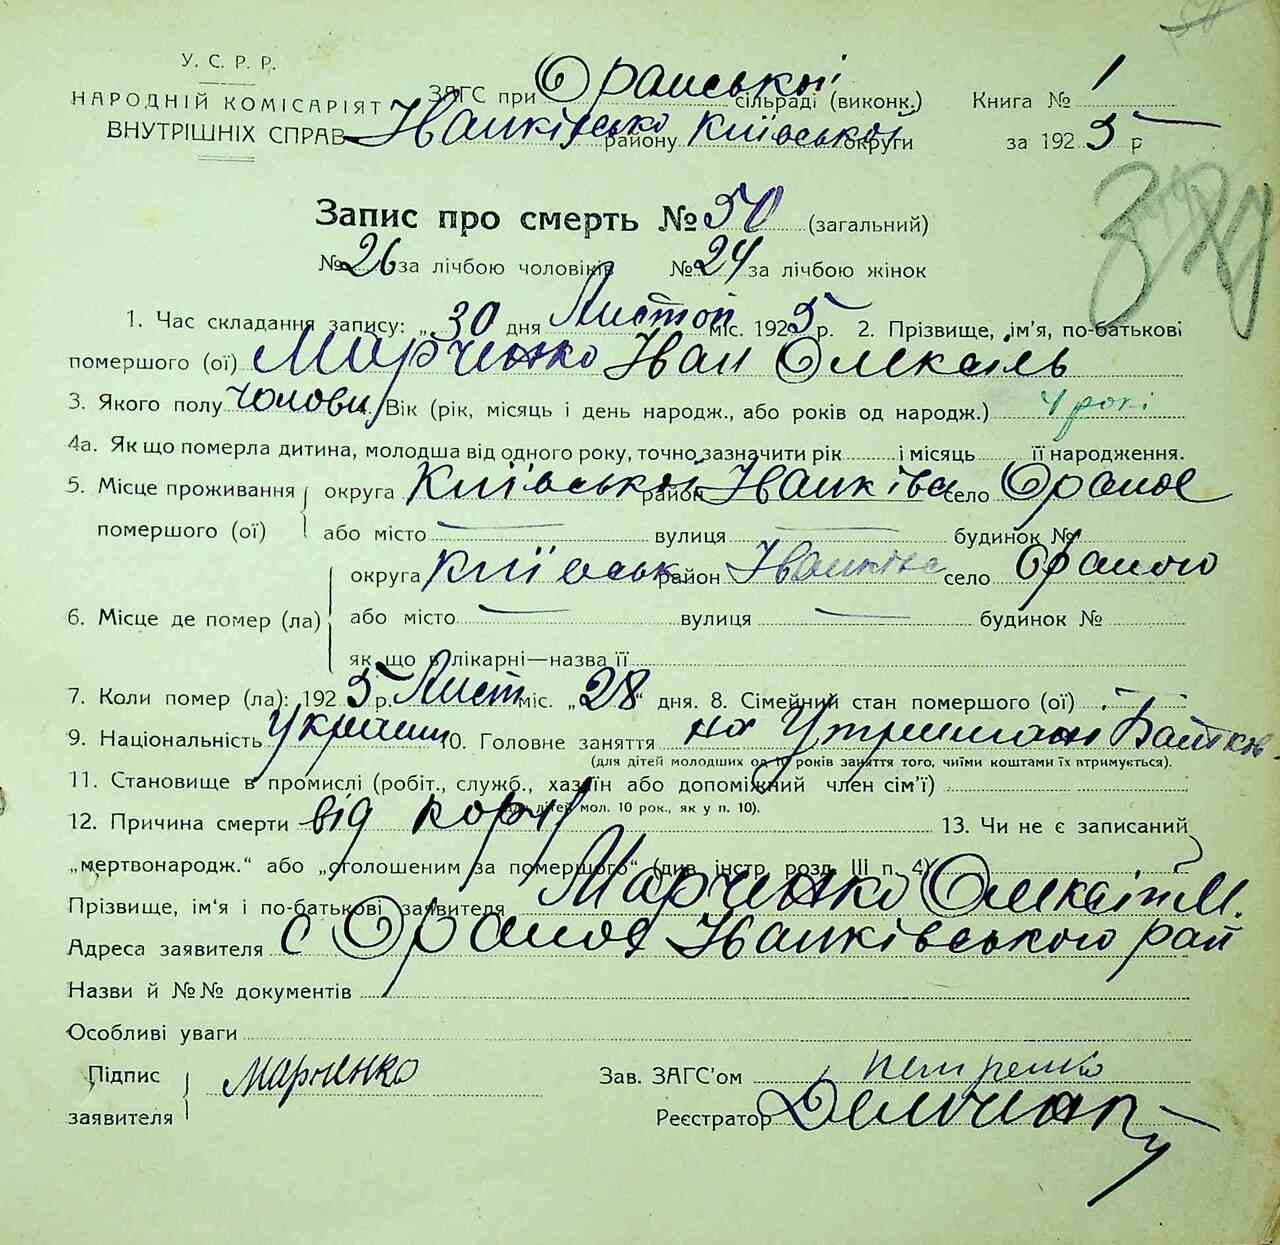 У. С. Р. Р.
НАРОДНІЙ КОМІСАРІЯТ
ВНУТРІШНІХ СПРАВ
ЗАГС при Ораської сільраді (виконк.)
Іванківсько району Київської округи
Книга № 1
за 1925 р
Запис про смерть № 50 (загальний)
№ 26 за лічбою чоловіків № 24 за лічбою жінок
1. Час складання запису: „30 дня Листоп міс. 1925 р. 2. Прізвище, ім'я, по-батькові
помершого (ої) Марченко Іван
3. Якого полу чолови. Вік (рік, місяць і день народж., або років од народж.) 4 рокі
4а. Як що померла дитина, молодша від одного року, точно зазначити рік і місяць її народження.
5. Місце проживання помершого (ої) округа Київської район Іванківс село Орапое
або місто — вулиця — будинок №
6. Місце де помер (ла) округа Київськ район Іванківс село Орапого
або місто — вулиця — будинок №
як що в лікарні—назва її
7. Коли помер (ла): 1925 р. Лист міс. „28" дня. 8. Сімейний стан помершого (ої)
9. Національність Украинц 10. Головне заняття на Утриман Батьков
(для дітей молодших од 10 років заняття того, чиїми коштами їх втримується).
11. Становище в промислі (робіт., служб., хазяїн або допоміжний член сім'ї)
(для дітей мол. 10 рок., як у п. 10).
12. Причина смерти від кору 13. Чи не є записаний
„мертвонародж." або „оголошеним за помершого" (див. інстр. розд. III п. 4)
Прізвище, ім'я і по-батькові заявителя Марченко М.
Адреса заявителя с Орапое Іванківського рай
Назви й №№ документів
Особливі уваги
Підпис заявителя Марченко
Зав. ЗАГС'ом Петренко
Реєстратор